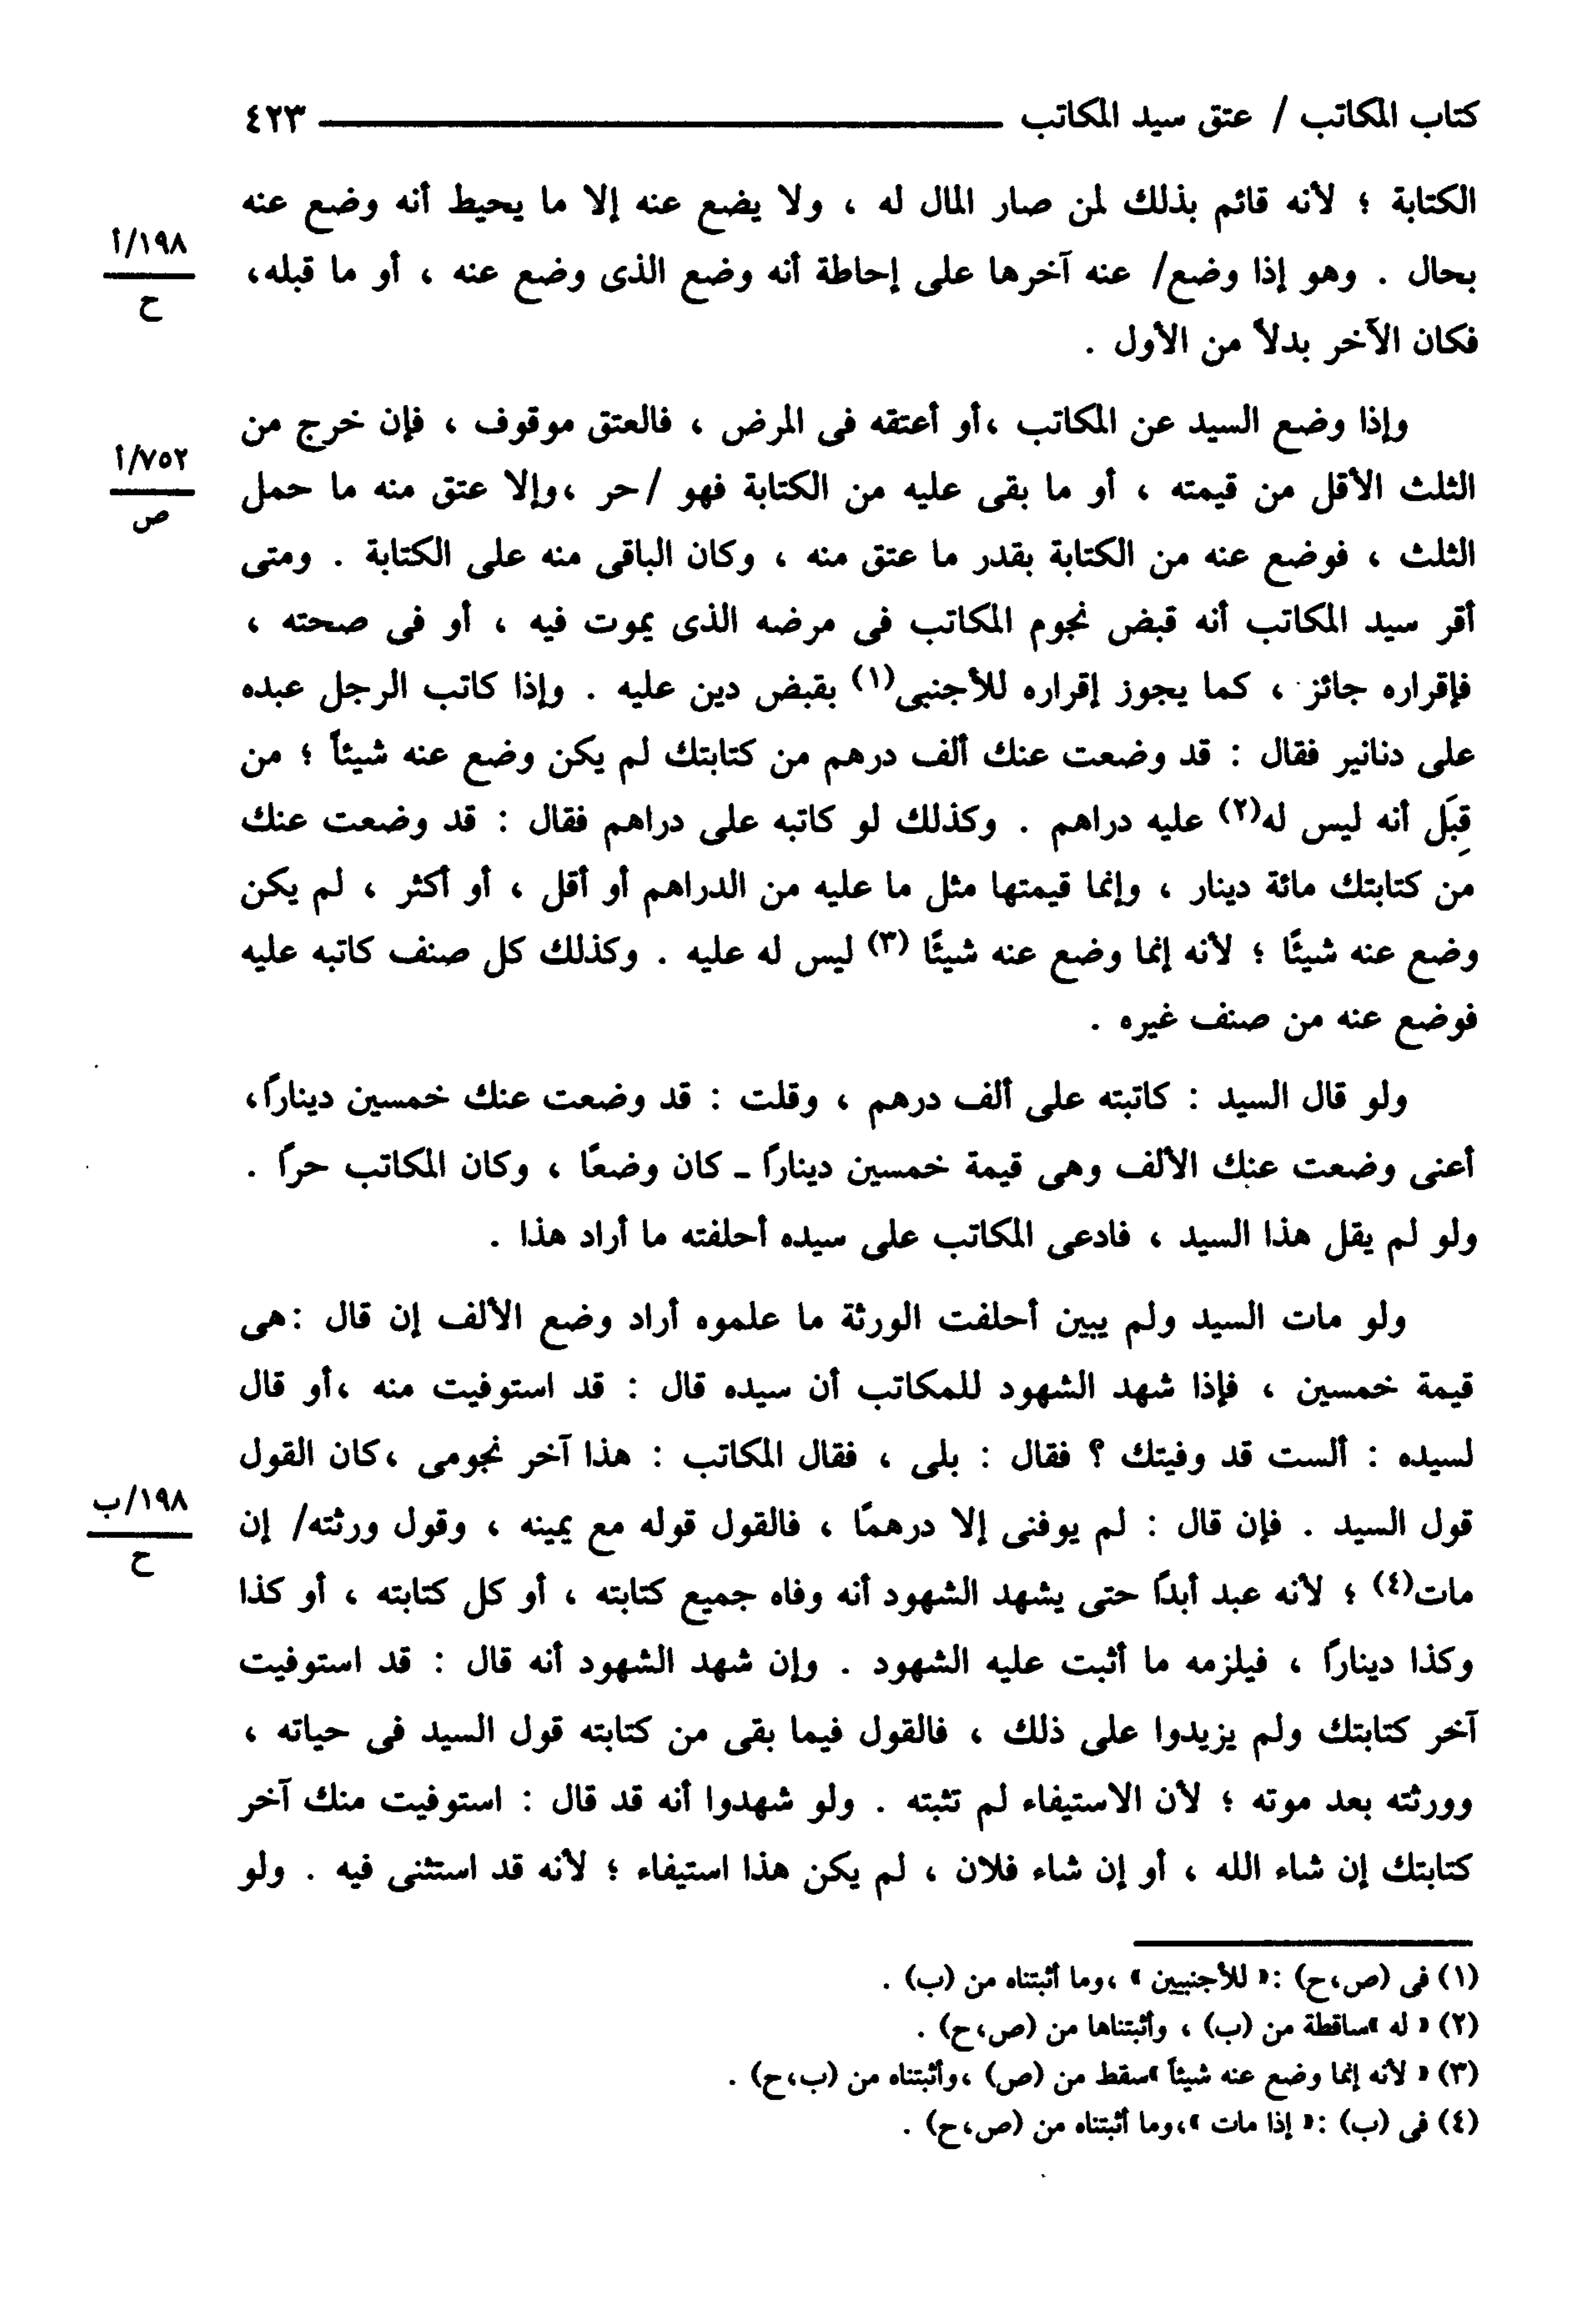 كتاب المكاتب / عتق سيد المكاتب ــــــــــ ٤٢٣
الكتابة ؛ لأنه قائم بذلك لمن صار المال له ، ولا يضع عنه إلا ما يحيط أنه وضع عنه
بحال . وهو إذا وضع/ عنه آخرها على إحاطة أنه وضع الذى وضع عنه ، أو ما قبله،
١٩٨/أ
ح
فكان الآخر بدلاً من الأول .
وإذا وضع السيد عن المكاتب ،أو أعتقه فى المرض ، فالعتق موقوف ، فإن خرج من
الثلث الأقل من قيمته ، أو ما بقى عليه من الكتابة فهو /حر ،وإلا عتق منه ما حمل
٧٥٢/أ
ص
الثلث ، فوضع عنه من الكتابة بقدر ما عتق منه ، وكان الباقى منه على الكتابة . ومتى
أقر سيد المكاتب أنه قبض نجوم المكاتب فى مرضه الذى يموت فيه ، أو فى صحته ،
فإقراره جائز ، كما يجوز إقراره للأجنبى(١) بقبض دين عليه . وإذا كاتب الرجل عبده
على دنانير فقال : قد وضعت عنك ألف درهم من كتابتك لم يكن وضع عنه شيئاً ؛ من
قِبَل أنه ليس له(٢) عليه دراهم . وكذلك لو كاتبه على دراهم فقال : قد وضعت عنك
من كتابتك مائة دينار ، وإنما قيمتها مثل ما عليه من الدراهم أو أقل ، أو أكثر ، لم يكن
وضع عنه شيئًا ؛ لأنه إنما وضع عنه شيئًا (٣) ليس له عليه . وكذلك كل صنف كاتبه عليه
فوضع عنه من صنف غيره .
ولو قال السيد : كاتبته على ألف درهم ، وقلت : قد وضعت عنك خمسين دينارًا،
أعنى وضعت عنك الألف وهى قيمة خمسين دينارًا ـ كان وضعًا ، وكان المكاتب حرًا .
ولو لم يقل هذا السيد ، فادعى المكاتب على سيده أحلفته ما أراد هذا .
ولو مات السيد ولم يبين أحلفت الورثة ما علموه أراد وضع الألف إن قال :هى
قيمة خمسين ، فإذا شهد الشهود للمكاتب أن سيده قال : قد استوفيت منه ،أو قال
لسيده : ألست قد وفيتك ؟ فقال : بلى ، فقال المكاتب : هذا آخر نجومى ،كان القول
قول السيد . فإن قال : لم يوفنى إلا درهمًا ، فالقول قوله مع يمينه ، وقول ورثته/ إن
١٩٨/ب
ح
مات(٤) ؛ لأنه عبد أبدًا حتى يشهد الشهود أنه وفاه جميع كتابته ، أو كل كتابته ، أو كذا
وكذا دينارًا ، فيلزمه ما أثبت عليه الشهود . وإن شهد الشهود أنه قال : قد استوفيت
آخر كتابتك ولم يزيدوا على ذلك ، فالقول فيما بقى من كتابته قول السيد فى حياته ،
وورثته بعد موته ؛ لأن الاستيفاء لم تثبته . ولو شهدوا أنه قد قال : استوفيت منك آخر
كتابتك إن شاء الله ، أو إن شاء فلان ، لم يكن هذا استيفاء ؛ لأنه قد استثنى فيه . ولو
(١) فى (ص،ح) :« للأجنبيين » ،وما أثبتناه من (ب) .
(٢) « له »ساقطة من (ب) ، وأثبتناها من (ص،ح) .
(٣) « لأنه إنما وضع عنه شيئاً »سقط من (ص) ،وأثبتناه من (ب،ح) .
(٤) فى (ب) :« إذا مات »،وما أثبتناه من (ص،ح) .